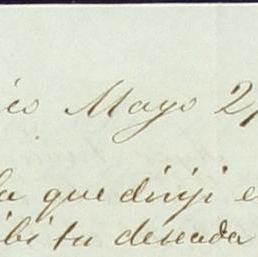 ico Mayo 2
la que diriji e
ibi tu deseada